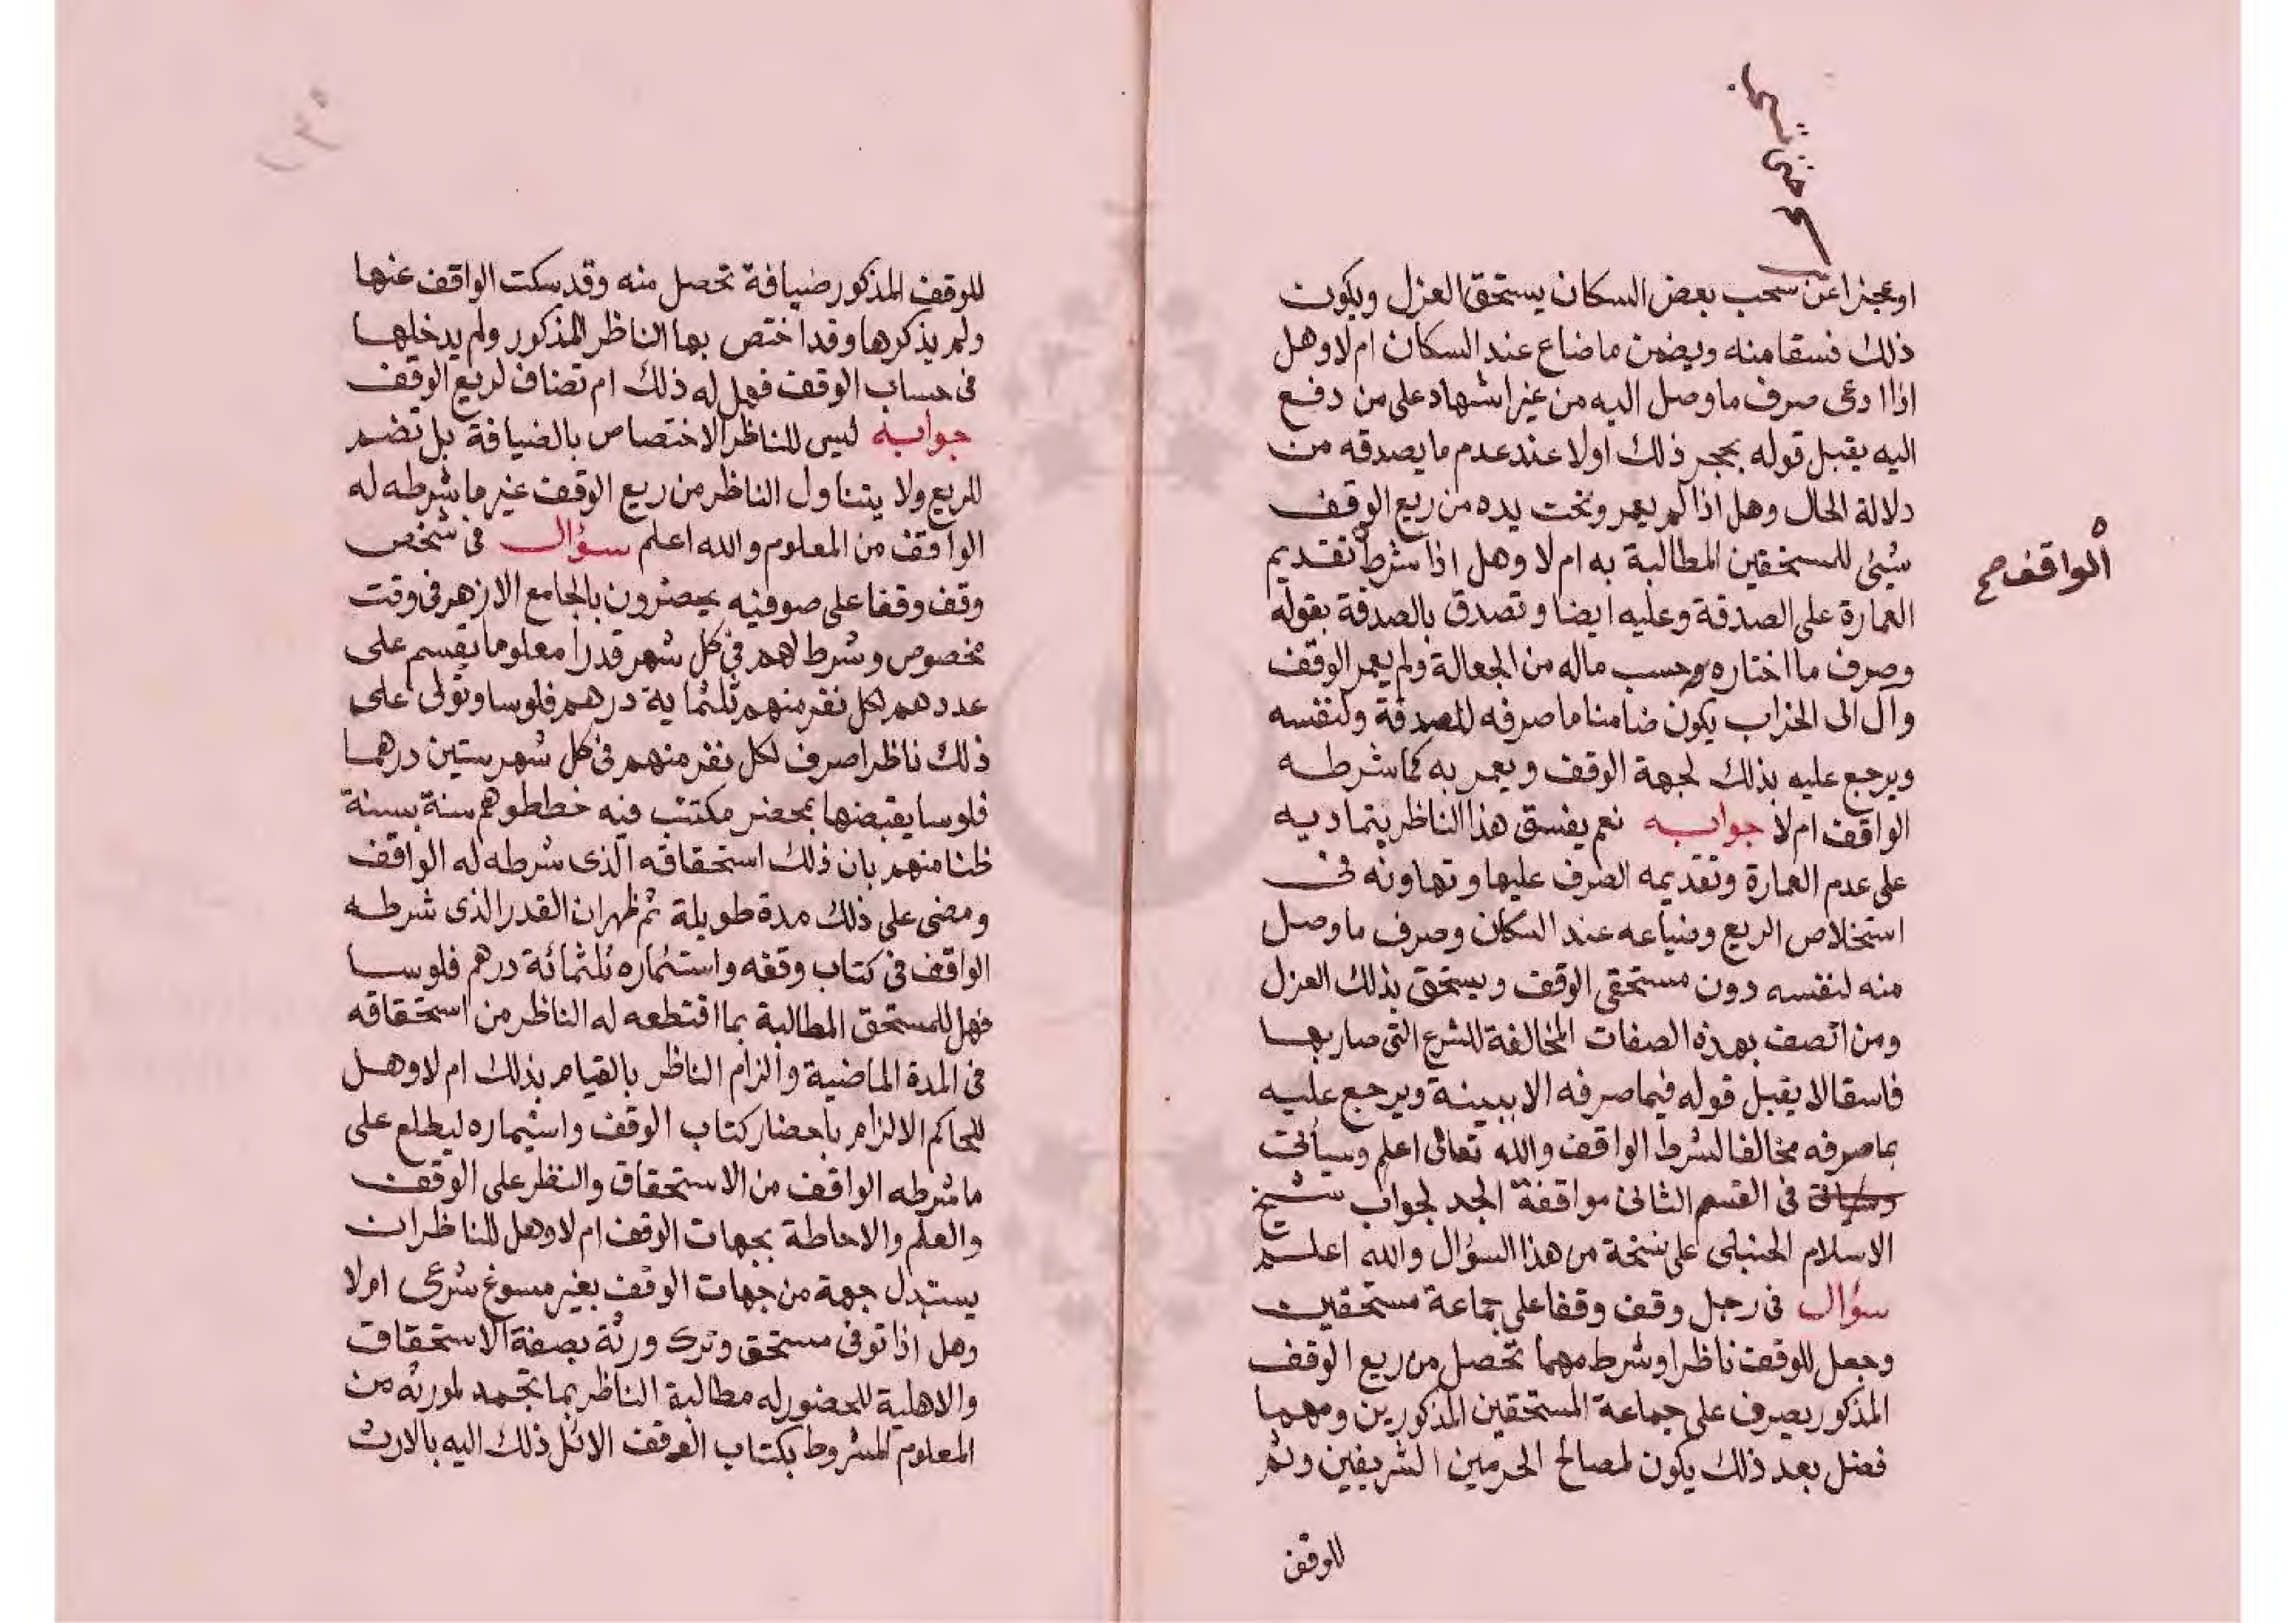 او عجزا عن سحب بعض السكان يستحق العزل ويكون
ذلك فسقا منه ويضمن ما ضاع عند السكان ام لا وهل
اذا ادعى صرف ما وصل اليه من غير اشهاد على من دفع
اليه يقبل قوله بمجرد ذلك اولا عند عدم ما يصدقه من
دلالة الحال وهل اذا لم يعمر وتحت يده من ريع الوقف
شيئى للمستحقين المطالبة به ام لا وهل اذا شرط تقديم
الواقف صح
العمارة على الصدقة وعليه ايضا وتصدق بالصدقة بقوله
وصرف ما اختاره وحسب ماله من الجعالة ولم يعمر الوقف
وآل الى الخراب يكون ضامنا ما صرفه للصدقة ولنفسه
ويرجع عليه بذلك لجهة الوقف ويعمر به كما شرطه
الواقف ام لا جوابه نعم يفسق هذا الناظر بتماديه
على عدم العمارة وتقديمه الصرف عليها وتهاونه فى
استخلاص الريع وضياعه عند السكان وصرف ما وصل
منه لنفسه دون مستحقى الوقف ويستحق بذلك العزل
ومن اتصف بهذه الصفات المخالفة للشرع التى صار بها
فاسقا لا يقبل قوله فيما صرفه الا ببينة ويرجع عليه
بما صرفه مخالفا لشرط الواقف والله تعالى اعلم وسيأتى
فى القسم الثانى موافقة الجد لجواب شيخ
الاسلام الحنبلى على نسخة من هذا السؤال والله اعلم
سؤال فى رجل وقف وقفا على جماعة مستحقين
وجعل للوقف ناظرا وشرط مهما تحصل من ريع الوقف
المذكور يصرف على جماعة المستحقين المذكورين ومهما
فضل بعد ذلك يكون لمصالح الحرمين الشريفين وثم
للوقف
للوقف المذكور ضيافة تحصل منه وقد سكت الواقف عنها
ولم يذكرها وقد اختص بها الناظر المذكور ولم يدخلها
فى حساب الوقف فهل له ذلك ام تضاف لريع الوقف
جوابه ليس للناظر الاختصاص بالضيافة بل تضم
للريع ولا يتناول الناظر من ريع الوقف غير ما شرطه له
الواقف من المعلوم والله اعلم سؤال فى شخص
وقف وقفا على صوفيه يحضرون بالجامع الازهر فى وقت
مخصوص وشرط لهم فى كل شهر قدرا معلوما يقسم على
عددهم لكل نفر منهم ثلثماية درهم فلوسا وتولى على
ذلك ناظرا صرف لكل نفر منهم فى كل شهر ستين درهما
فلوسا يقبضها بمحضر مكتتب فيه خططوهم سنة بسنة
ظنا منهم بان ذلك استحقاقه الذى شرطه له الواقف
ومضى على ذلك مدة طويلة ثم ظهر ان القدر الذى شرطه
الواقف فى كتاب وقفه واستئماره ثلثمائة درهم فلوسا
فهل للمستحق المطالبة بما اقتطعه له الناظر من استحقاقه
فى المدة الماضية والزام الناظر بالقيام بذلك ام لا وهل
للحاكم الالزام باحضار كتاب الوقف واستيماره ليطلع على
ما شرطه الواقف من الاستحقاق والنظر على الوقف
والعلم والاحاطة بجهات الوقف ام لا وهل للناظر ان
يستبدل جهة من جهات الوقف بغير مسوغ شرعى ام لا
وهل اذا توفى مستحق وترك ورثة بصفة الاستحقاق
والاهلية للحضور له مطالبة الناظر بما تجمد لمورثه من
المعلوم المشروط بكتاب الوقف الائل ذلك اليه بالارث